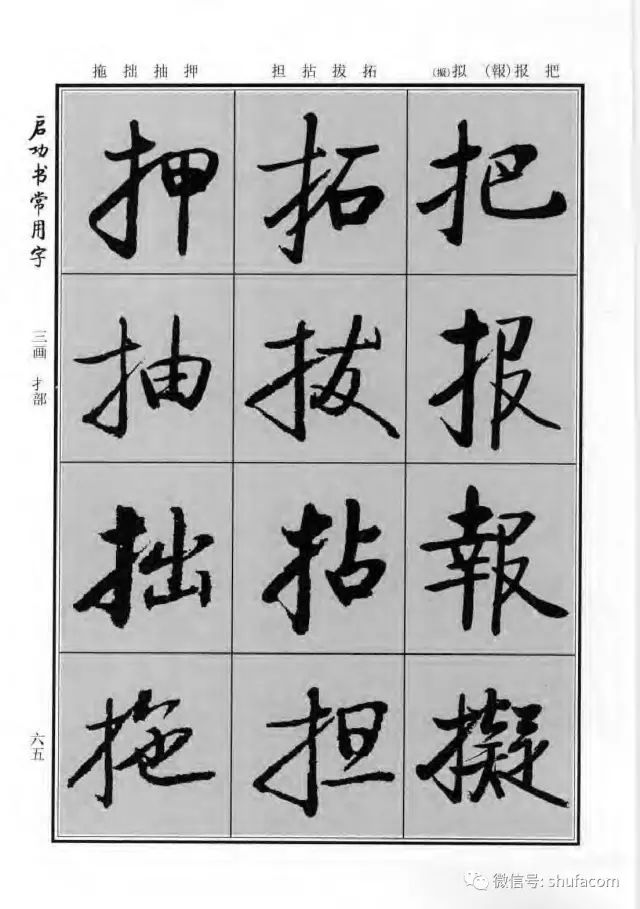 把报(報)拟(擬)
拓拔拈担
押抽拙拖
启功书常用字
三画 扌部
六五
把
报
報
擬
拓
拔
拈
担
押
抽
拙
拖
微信号: shufacom